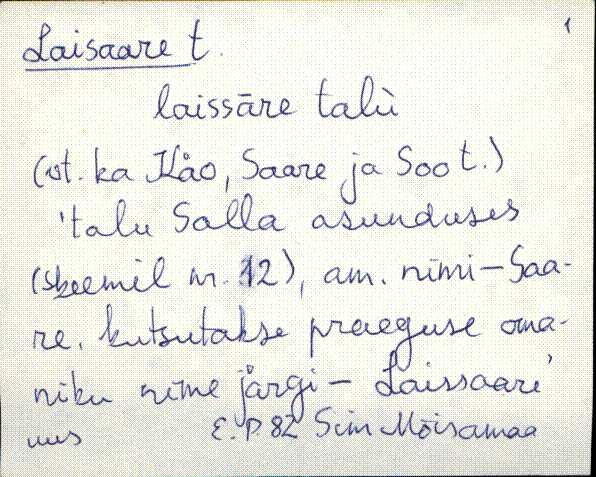 1
Laisaare t.
laissāre talù
(vt. ka Kåo, Saare ja Soo t.)
'talu Salla asunduses
(skeemil nr. 12), am. nimi - Saa-
re. kutsutakse praeguse oma-
niku nime järgi - Laissaare'
uus E.P. 82 Sim Mõisamaa